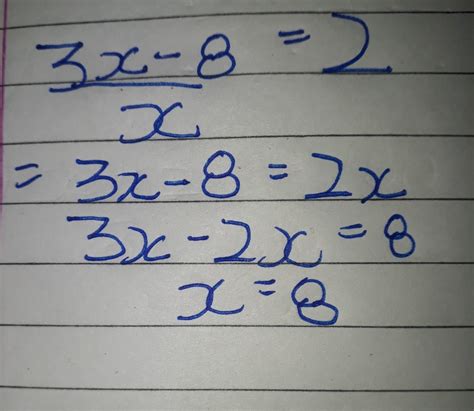 3x-8 = 2
x
= 3x-8 = 2x
3x-2x = 8
x = 8